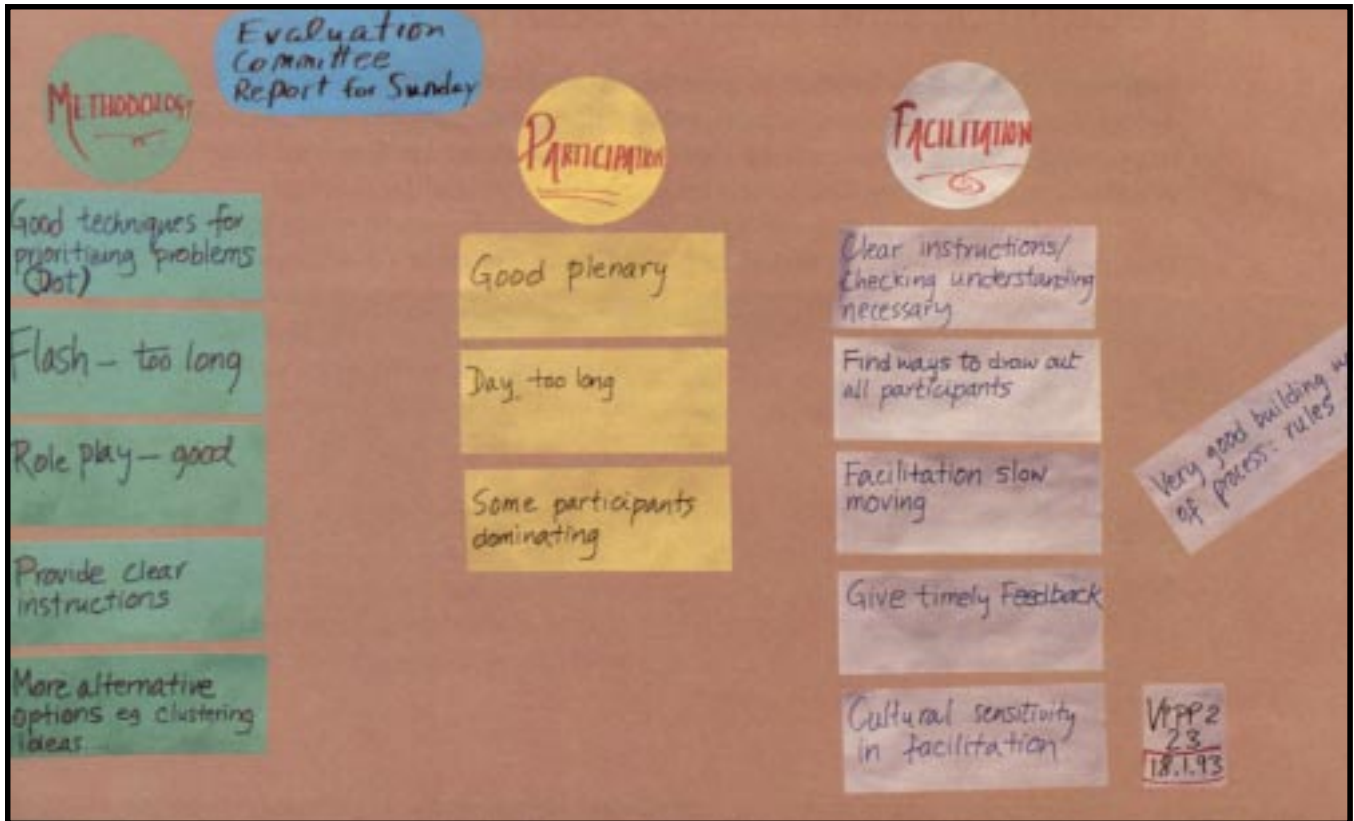 Evaluation
Committee
Report for Sunday
METHODOLOGY
Good techniques for
prioritizing problems
(Dot)
Flash – too long
Role play – good
Provide clear
instructions
More alternative
options eg clustering
ideas
PARTICIPATION
Good plenary
Day too long
Some participants
dominating
FACILITATION
Clear instructions/
Checking understanding
necessary
Find ways to draw out
all participants
Facilitation slow
moving
Give timely Feedback
Cultural sensitivity
in facilitation
Very good building
of process: rules
23
18.1.93